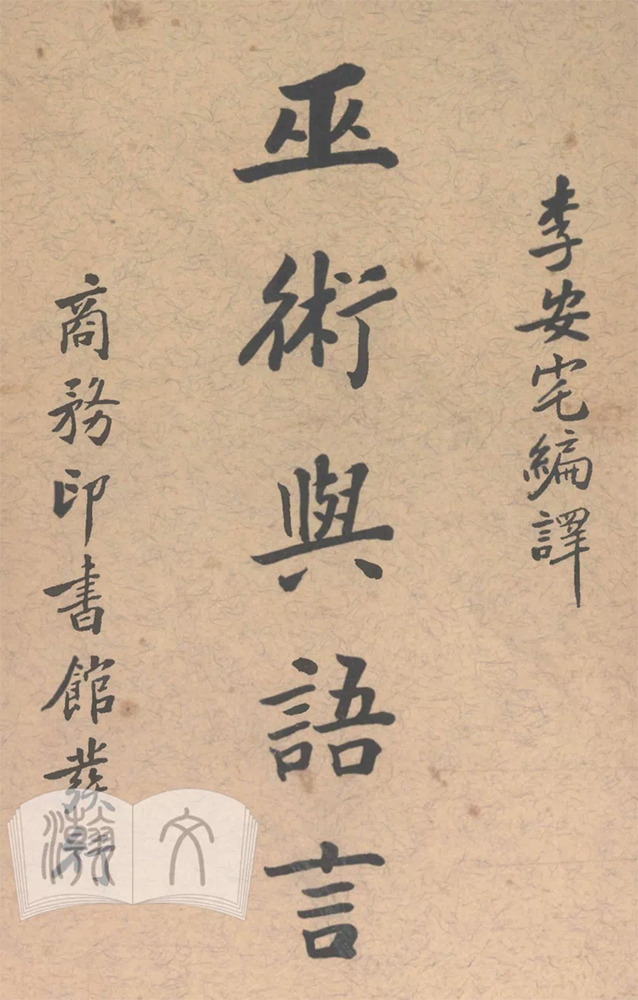 李安宅編譯
巫術與語言
商務印書館發
瀚文